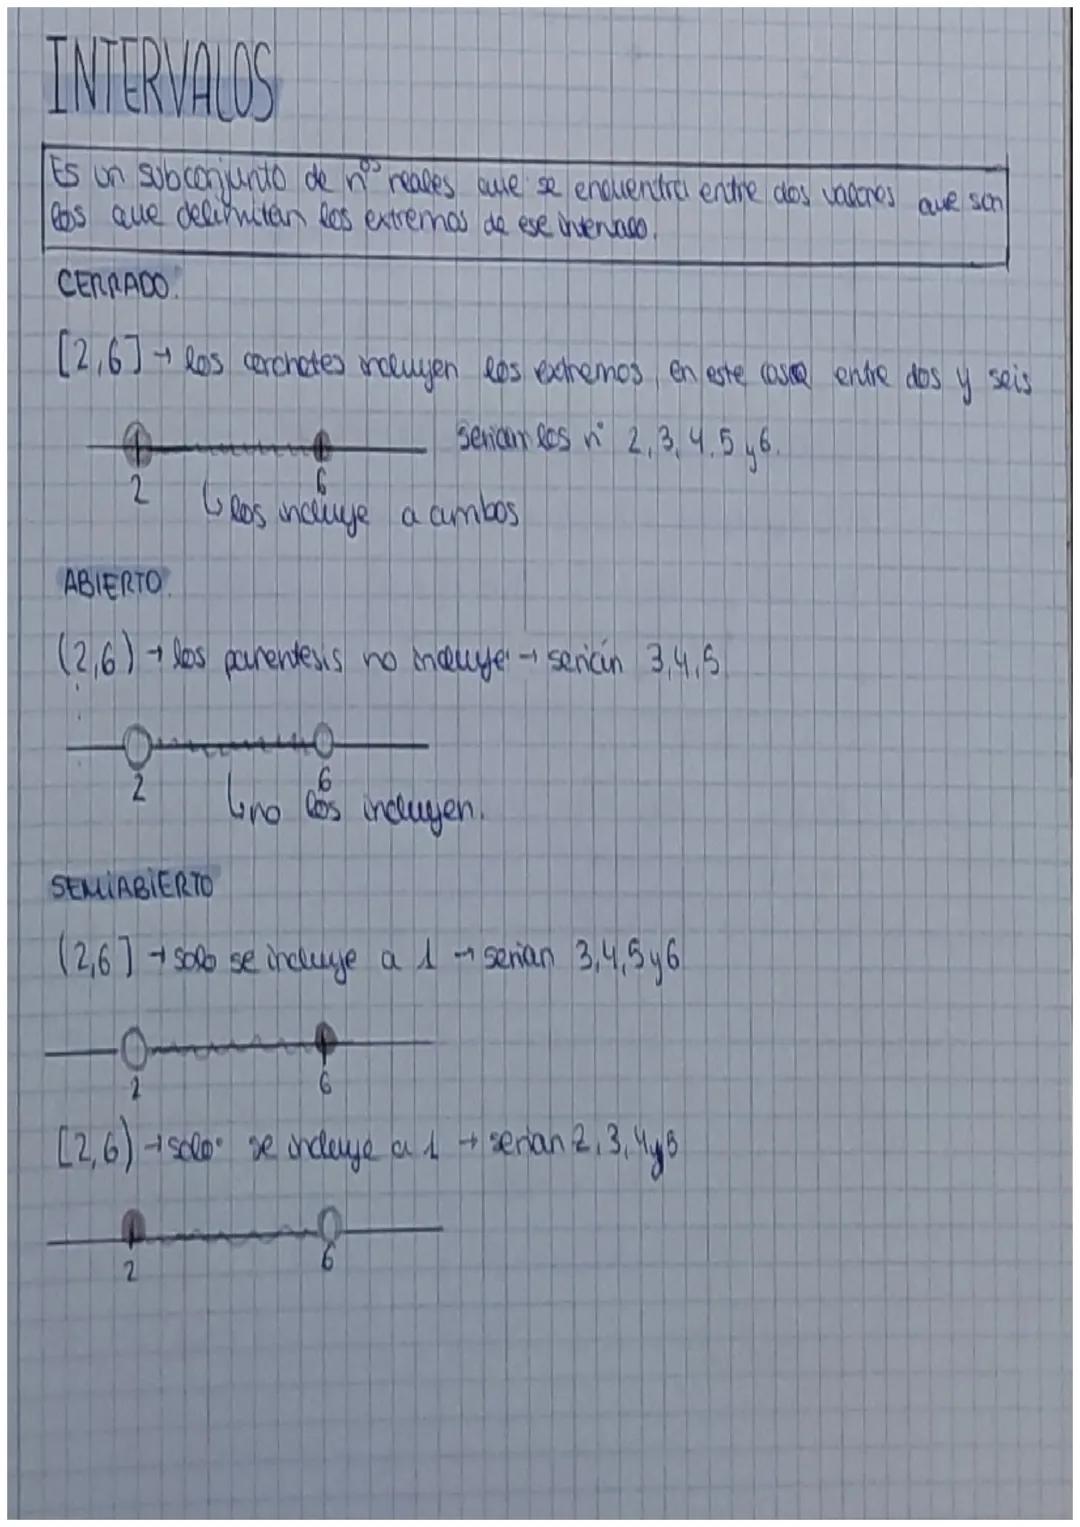 INTERVALOS
Es un subconjunto de nºs reales que se encuentra entre dos valores que son
los que delimitan los extremos de ese intervalo.
CERRADO.
[2,6] → los corchetes incluyen los extremos, en este caso entre dos y seis
serian los nº 2,3,4,5 y 6.
2 6
↳ los incluye a ambos
ABIERTO.
(2,6) → los parentesis no incluye → serían 3,4,5
2 6
↳ no los incluyen.
SEMIABIERTO
(2,6] → solo se incluye a 1 → serian 3,4,5 y 6
2 6
[2,6) → solo se incluye a 1 → serian 2,3,4 y 5
2 6